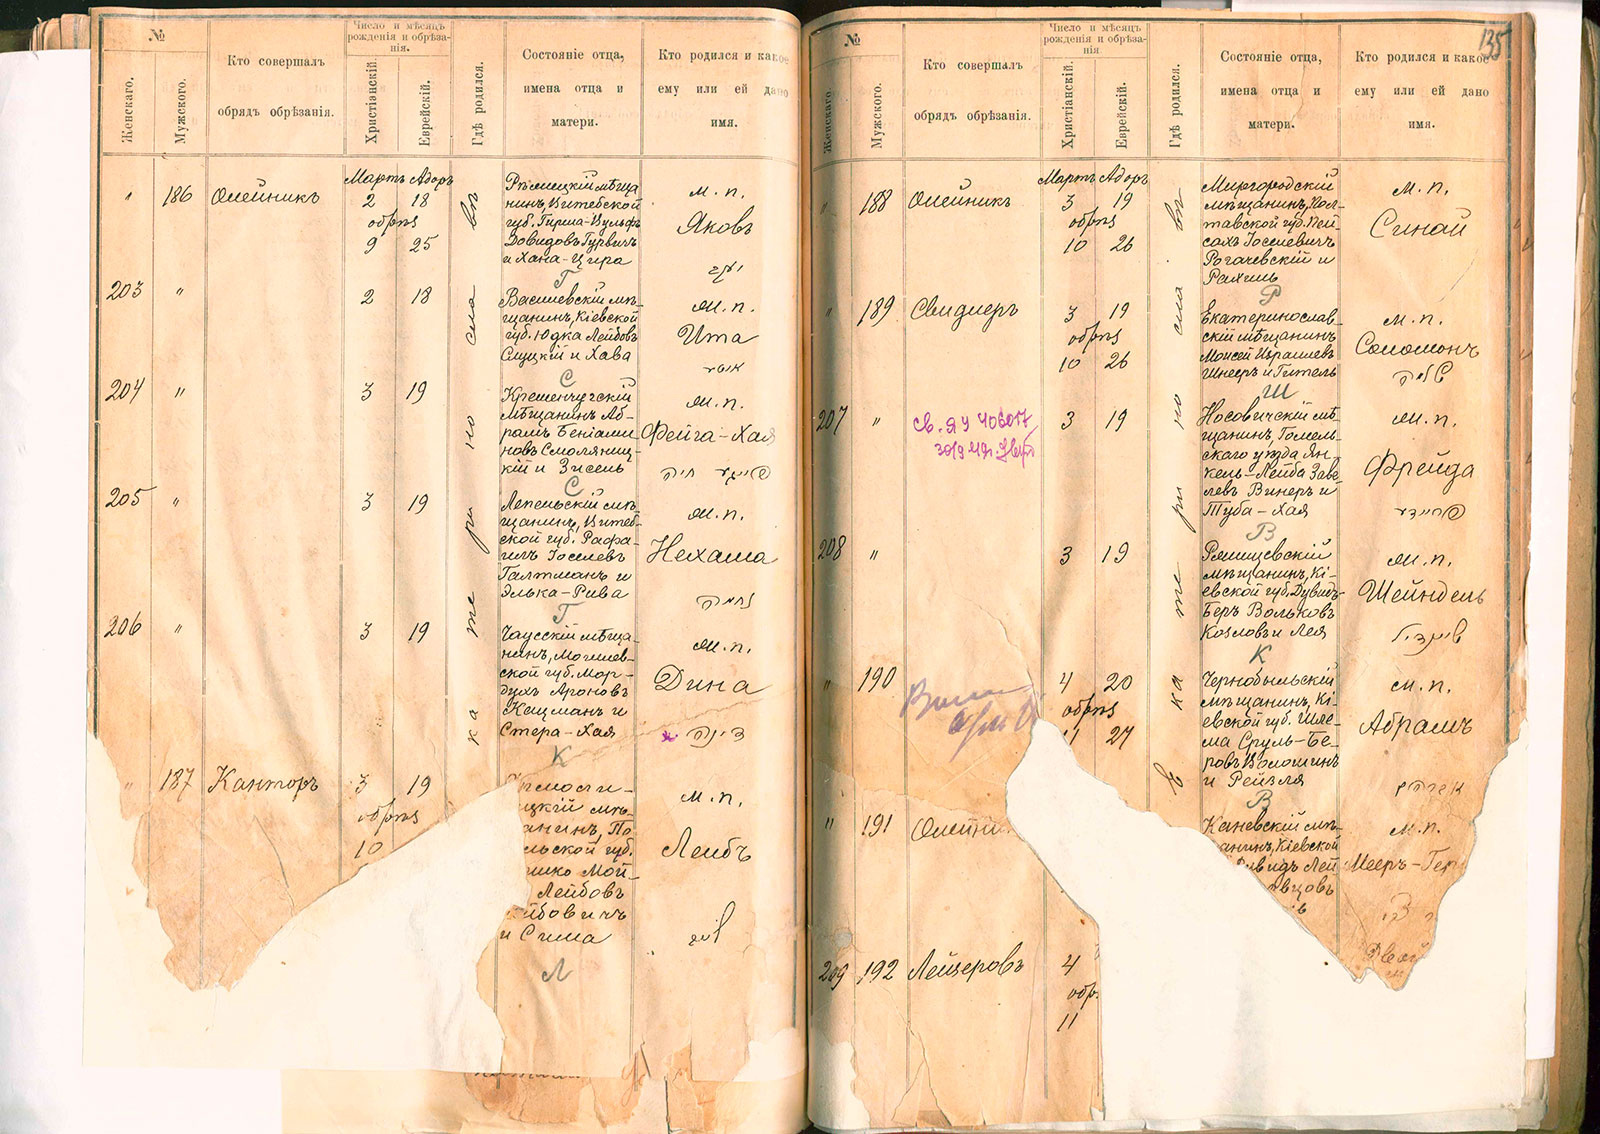 №
Женскаго.
Мужского.
Кто совершалъ
обрядъ обрѣзанія.
Число и мѣсяцъ
рожденія и обрѣза-
нія.
Христіанскій.
Еврейскій.
Гдѣ родился.
Состояніе отца,
имена отца и
матери.
Кто родился и какое
ему или ей дано
имя.
въ Екатеринославѣ
" 186 Олейникъ
Мартъ Адоръ
2 18
обрѣз
9 25
мѣща
нинъ, Витебской
губ. Гирша-Вульфъ
Довидовъ Гурвичъ
и Хана-Цира
Г
м. п.
Яковъ
יעקב
203 "
2 18
Василевскій мѣ-
щанинъ, Кіевской
губ. Юдка Лейбовъ
Слуцкій и Хава
С
ж. п.
Ита
204 "
3 19
Кременчугскій
мѣщанинъ Аб-
рамъ Беніами-
новъ Смоляниц-
кій и Зисель
С
ж. п.
Фейга-Хая
פייגע חיה
205 "
3 19
Лепельскій мѣ-
щанинъ, Витеб-
ской губ. Рафа-
илъ Іоселевъ
Галтманъ и
Элька-Рива
Г
ж. п.
Нехама
נחמה
206 "
3 19
Чаусскій мѣща-
нинъ, Могилев-
ской губ. Мор-
духъ Ароновъ
Кацманъ и
Стера-Хая
К
ж. п.
Дина
דינה
" 187 Канторъ
3 19
обрѣз
10
цкій мѣ-
анинъ, По
льской губ.
шко Мой-
Лейбовъ
йбовичъ
и Сима
Л
м. п.
Лейбъ
לייב
135
№
Женскаго.
Мужского.
Кто совершалъ
обрядъ обрѣзанія.
Число и мѣсяцъ
рожденія и обрѣза-
нія
Христіанскій.
Еврейскій.
Гдѣ родился.
Состояніе отца,
имена отца и
матери.
Кто родился и какое
ему или ей дано
имя.
въ Екатеринославѣ
" 188 Олейникъ
Мартъ Адоръ
3 19
обрѣз
10 26
Миргородскій
мѣщанинъ, Пол-
тавской губ. Пей-
сахъ Іоселевичъ
Рогачевскій и
Рахиль
Р
м. п.
Синай
" 189 Свидлеръ
3 19
обрѣз
10 26
Екатеринослав-
скій мѣщанинъ
Моисей Израилевъ
Шнееръ и Гитель
Ш
м. п.
Соломонъ
שלמה
207 "
св. ЯУ 406017
3 19
Носовичскій мѣ-
щанинъ, Гомель-
скаго уѣзда Ян-
кель-Лейба Заве-
левъ Винеръ и
Туба-Хая
В
ж. п.
Фрейда
פריידע
208 "
3 19
мѣщанинъ, Кі-
евской губ. Дувидъ-
Беръ Вольковъ
Козловъ и Лея
К
ж. п.
Шейндель
שיינדיל
" 190
4 20
обрѣз
11 27
Чернобыльскій
мѣщанинъ, Кі-
евской губ. Шле-
ма Сруль-Бе-
ровъ Волошинъ
и Рейзля
В
м. п.
Абрамъ
אברהם
" 191 Олейни
Каневскій мѣ-
анинъ, Кіевской
видъ Лей
вцовъ
м. п.
Мееръ-Гер
209 192 Лейзеровъ
4
обрѣ
11